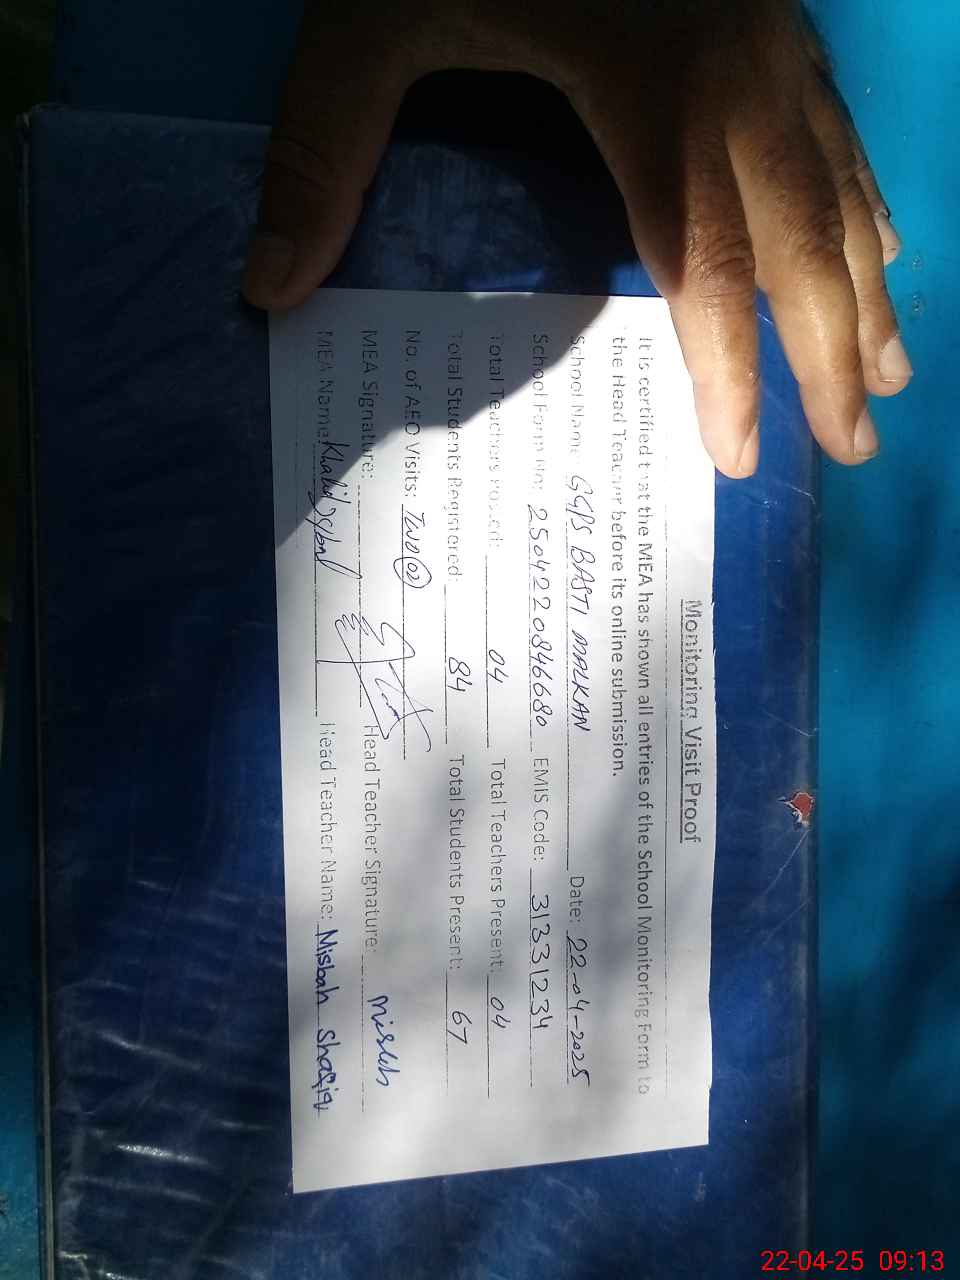 Monitoring Visit Proof
It is certified that the MEA has shown all entries of the School Monitoring Form to
the Head Teacher before its online submission.
School Name: GGPS BASTI MALKAN Date: 22-04-2025
School Form No: 250422084668​0 EMIS Code: 31331234
Total Teachers Posted: 04 Total Teachers Present: 04
Total Students Registered: 84 Total Students Present: 67
No. of AEO Visits: Two (02)
MEA Signature: Head Teacher Signature: Misbah
MEA Name: Khalid Iqbal Head Teacher Name: Misbah Shafiq
22-04-25 09:13